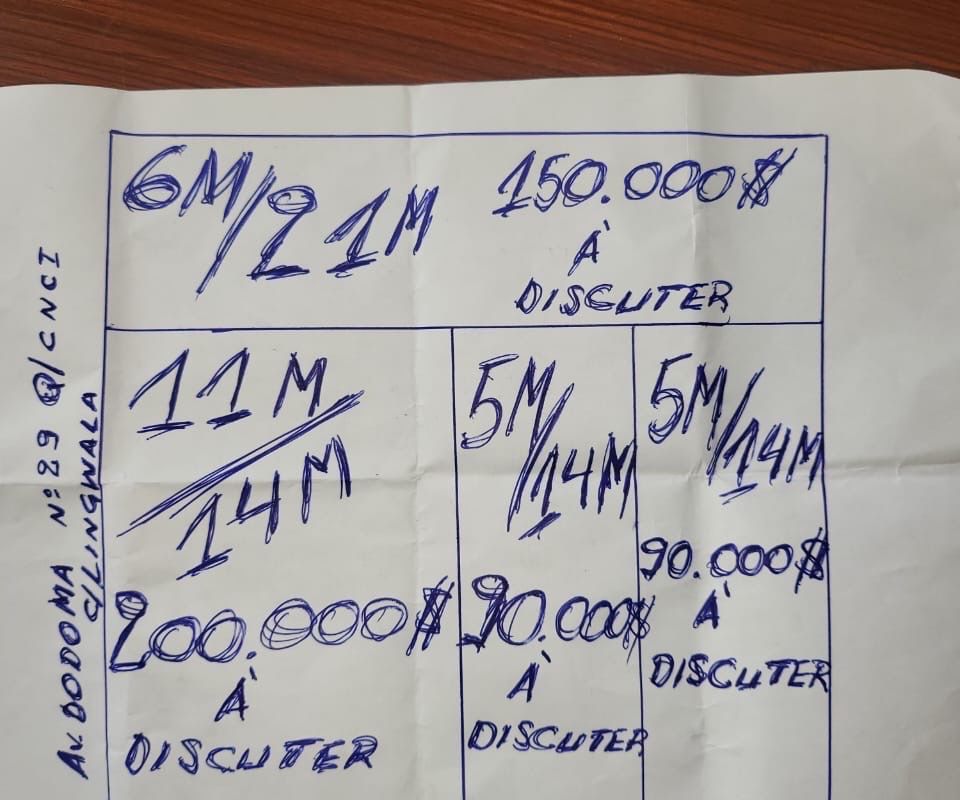 6M/21M
150.000$
À
DISCUTER
11M/14M
200.000$
À
DISCUTER
5M/14M
90.000$
À
DISCUTER
5M/14M
90.000$
À
DISCUTER
Av. DODOMA N°:29 Q/CNCI
C/LINGWALA